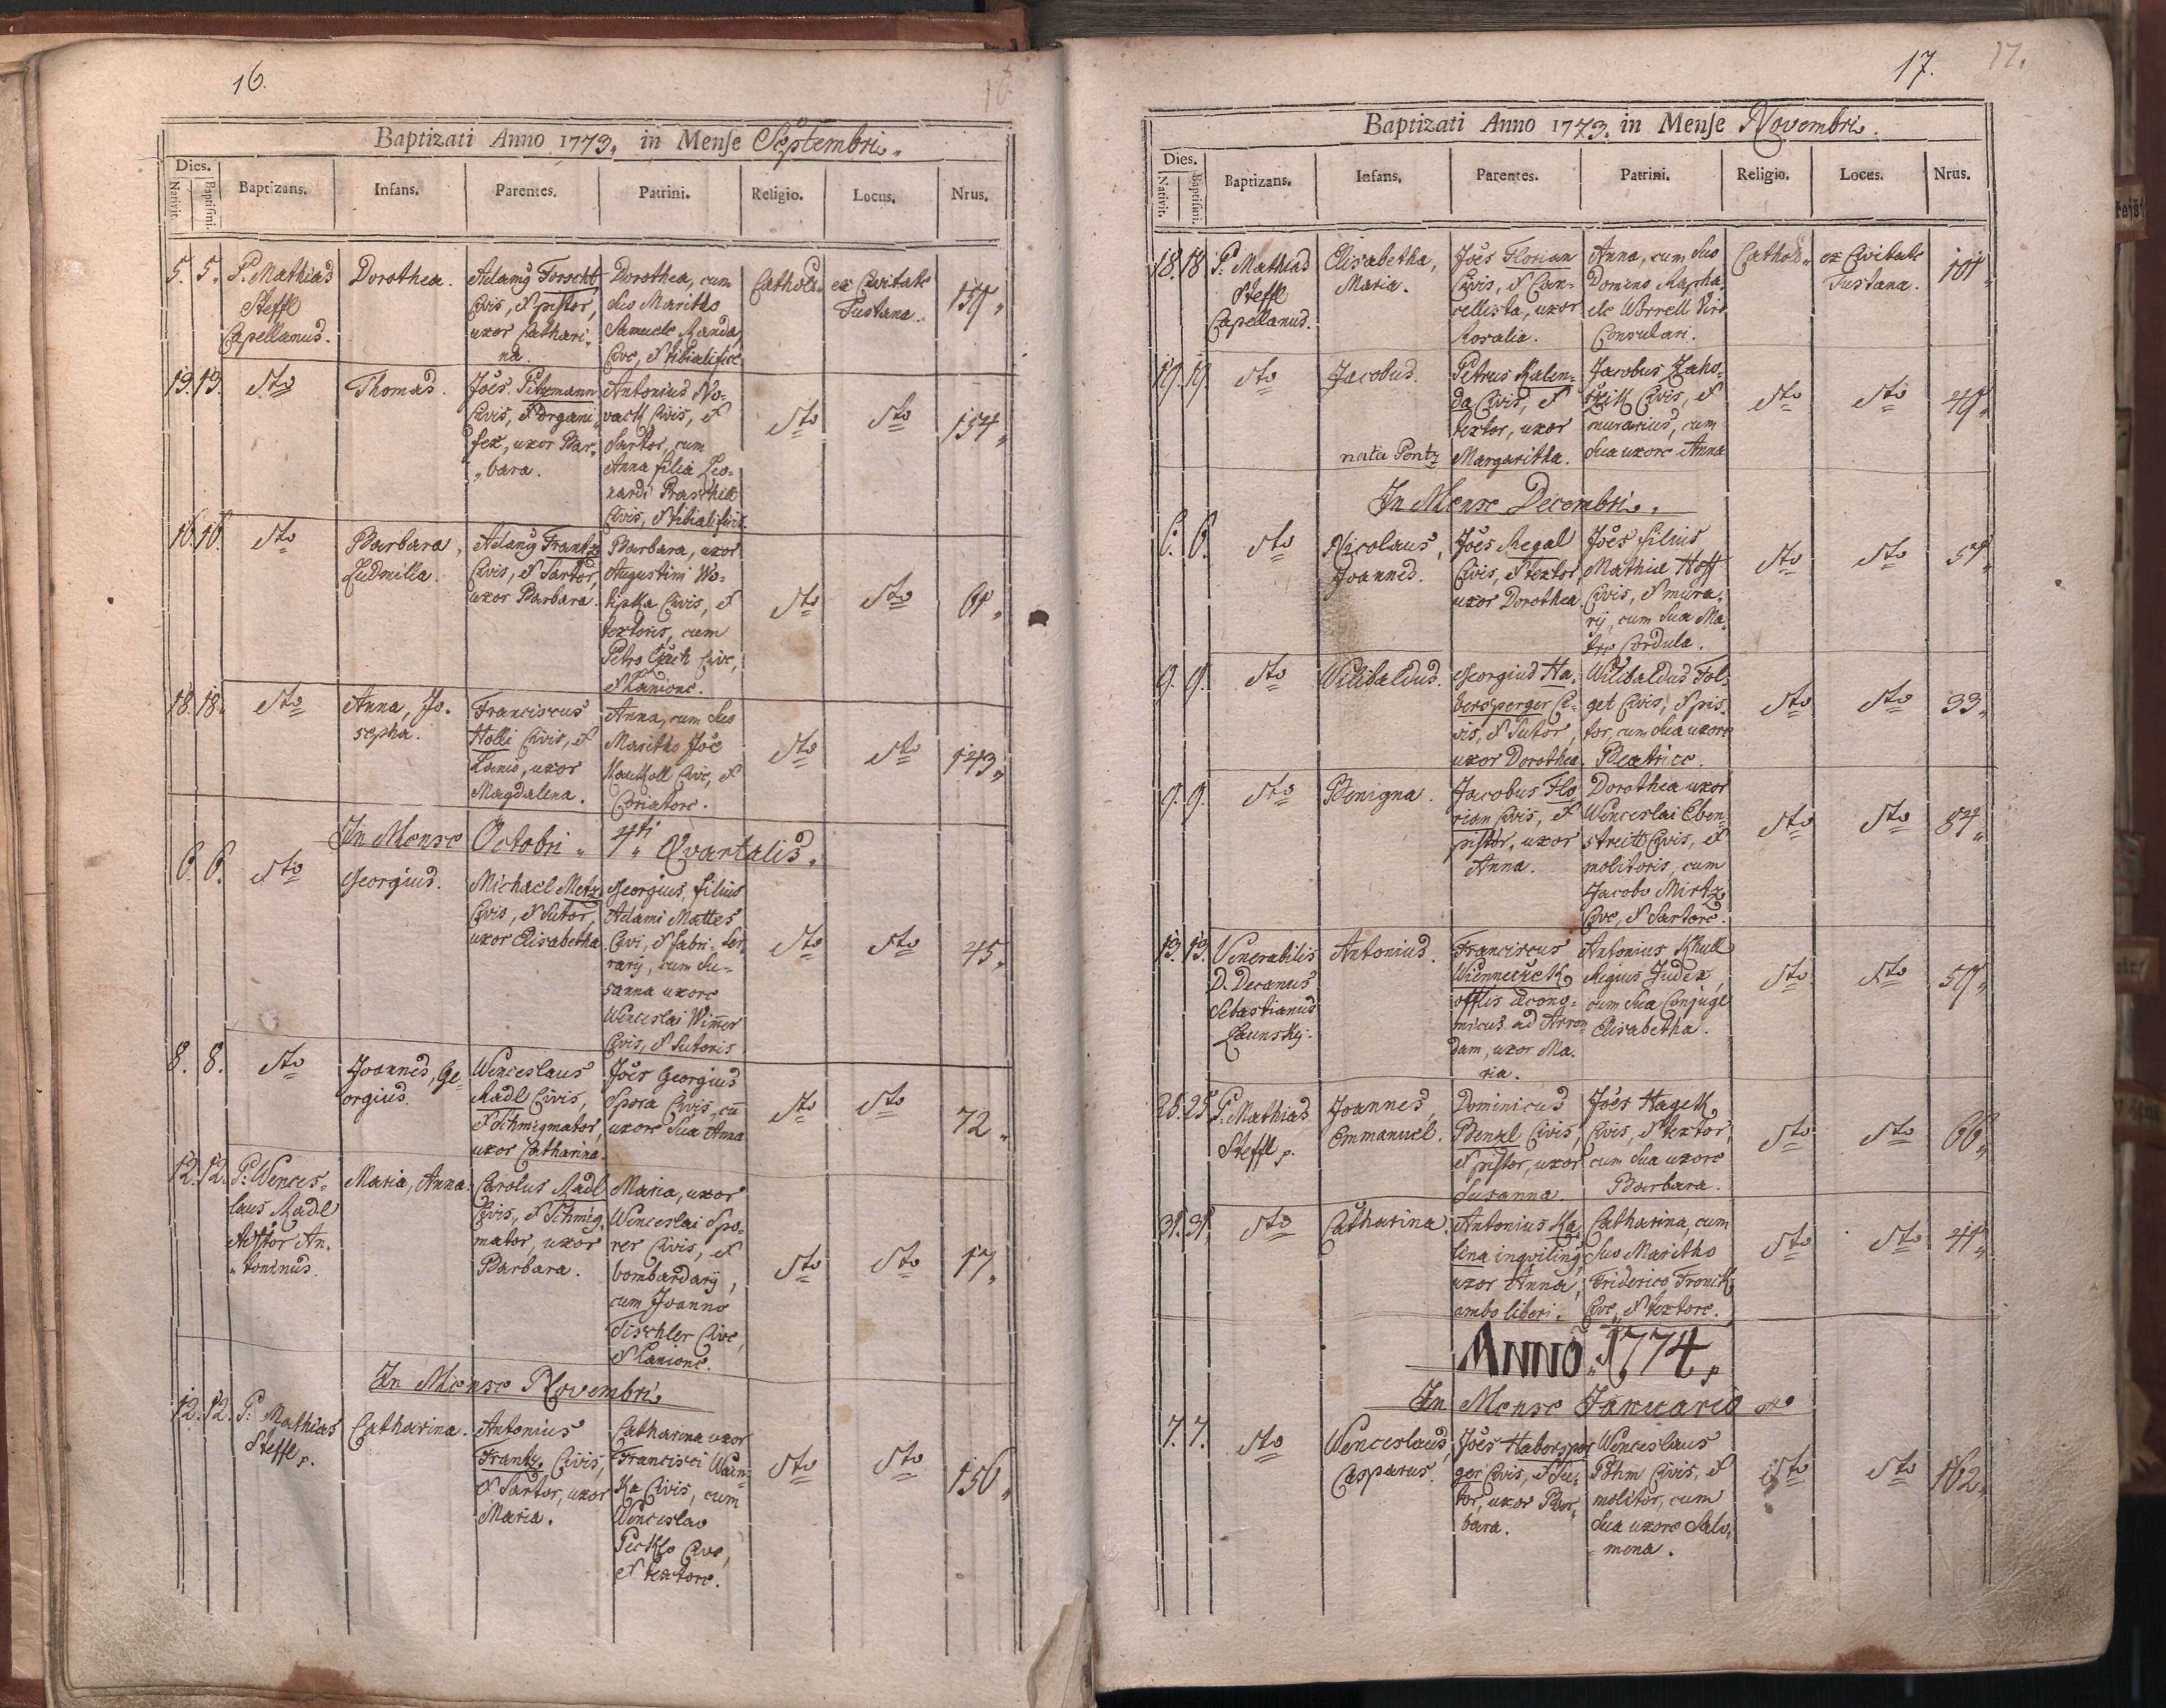 16.
16
Baptizati Anno 1773. in Mense Septembri.
Dies.
Nativit.
Baptismi.
Baptizans.
Infans.
Parentes.
Patrini.
Religio.
Locus.
Nrus.
5. 5. P. Mathias
Steffl
Capellanus.
Dorothea.
Adamg Forscht
Civis, et pistor,
uxor Cathari-
na.
Dorothea, cum
Suo Maritho
Samuele Randa
Cive, et tibialifice
Cathol.
ex Civitate
Tustana.
13. 13. dto
Thomas.
Joes Pitzmann
Civis, et organi
fex, uxor Bar-
bara.
Antonius No-
vack Civis, et
Sartor, cum
Anna filia Leo-
nardi Praschek
Civis, et tibialificis.
dto
dto
154
16. 16. dto
Barbara,
Ludmilla.
Adamg Frantz
Civis, et Sartor,
uxor Barbara
Barbara, uxor
Augustini Wo-
tipka Civis, et
textoris, cum
Petro Cive,
et Lanione.
dto
dto
61
18. 18. dto
Anna, Jo-
sepha.
Franciscus
Holli Civis, et
Lanio, uxor
Magdalena.
Anna, cum Suo
Maritho Joe
Kaukoll Cive, et
Coriatore.
dto
dto
143
In Mense Octobri 4ti Qvartalis.
6. 6. dto
Georgius.
Michael Metz
Civis, et Sutor,
uxor Elisabetha
Georgius, filius
Adami Mattes
Civi, et fabri-Ser
rarij, cum Su-
sanna uxore
Wenceslai Wim̅er
Civis, et Sutoris
dto
dto
45
8. 8. dto
Joannes, Ge-
orgius.
Wenceslaus
Madl Civis,
et Schmigmator,
uxor Catharina.
Joes Georgius
Spora Civis, cu̅
uxore Sua Anna
dto
dto
72
12. 12. P. Wences-
laus Madl
Antor An-
toninus.
Maria, Anna.
Carolus Madl
Civis, et Schmig
mator, uxor
Barbara.
Maria, uxor
Wenceslai Spo-
rer Civis, et
bombardarij,
cum Joanne
Tischler Cive,
et Lanione.
dto
dto
17
In Mense Novembri.
12. 12. P. Mathias
Steffl p.
Catharina.
Antonius
Frantz Civis,
et Sartor, uxor
Maria.
Catharina uxor
Francisci Wain-
ka Civis, cum
Wenceslao
Pecklo Cive,
et textore.
dto
dto
156
17.
17.
Baptizati Anno 1773. in Mense Novembri.
Dies.
Nativit.
Baptismi.
Baptizans.
Infans.
Parentes.
Patrini.
Religio.
Locus.
Nrus.
18. 18 P. Mathias
Steffl
Capellanus.
Elisabetha,
Maria.
Joes Florian
Civis, et Can-
cellista, uxor
Rosalia.
Anna, cum Suo
Domino Rapha-
ele Worrell Viro
Consulari.
Cathol.
ex Civitate
Tustana.
101
19. 19. dto
Jacobus.
nata Pentz
Petrus Kalen-
da Civis, et
textor, uxor
Margaritha.
Jacobus Zaho-
rzik Civis, et
murarius, cum
Sua uxore Anna
dto
dto
49
In Mense Decembri.
6. 6. dto
Nicolaus,
Joannes.
Joes Regal
Civis, et textor,
uxor Dorothea.
Joes filius
Mathiæ Hoff
Civis, et mura-
rij, cum Sua Ma-
tre Cordula.
dto
dto
57
9. 9. dto
Wilibaldus.
Georgius Ha-
bersperger Ci-
vis, et Sutor,
uxor Dorothea.
Wilibaldus Fol-
get Civis, et pis-
tor, cum Sua uxore
Beatrice.
dto
dto
33
9. 9. dto
Benigna.
Jacobus Flo
rian Civis, et
pistor, uxor
Anna.
Dorothea uxor
Wenceslai Eben-
streitt Civis, et
molitoris, cum
Jacobo Mirtz
Cive, et Sartore.
dto
dto
84
13. 13. Venerabilis
D. Decanus
Sebastianus
Launsky.
Antonius.
Franciscus
Wiennetzek
offlis œcono-
micus ad Arren-
dam, uxor Ma-
ria.
Antonius Khull
Regius Judex,
cum Sua Conjuge
Elisabetha.
dto
dto
59
25. 25. P. Mathias
Steffl p.
Joannes,
Emmanuel.
Dominicus
Benzl Civis,
et pistor, uxor
Susanna.
Joes Hagek
Civis, et textor,
cum Sua uxore
Barbara.
dto
dto
66
31. 31. dto
Catharina.
Antonius Ka-
lina inqviling
uxor Anna,
ambo liberi.
Catharina, cum
Suo Maritho
Friderico Fronck
Cive, et textore.
dto
dto
ANNO 1774
In Mense Januario
7. 7. dto
Wenceslaus,
Casparus.
Joes Habersper
ger Civis, et Su-
tor, uxor Bar-
bara.
Wenceslaus
Böhm Civis, et
molitor, cum
Sua uxore Salo-
mena.
dto
dto
162